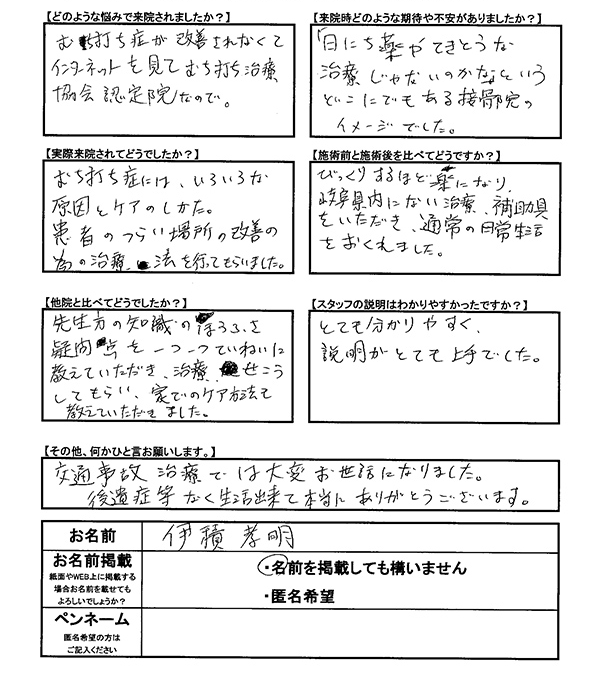 【どのような悩みで来院されましたか？】
むち打ち症が改善されなくて
インターネットを見てむち打ち治療
協会認定院なので。
【来院時どのような期待や不安がありましたか？】
「日にち薬やてきとうな
治療じゃないのかな」という
どこにでもある接骨院の
イメージでした。
【実際来院されてどうでしたか？】
むち打ち症には、いろいろな
原因とケアのしかた。
患者のつらい場所の改善の
為の治療法を行ってもらいました。
【施術前と施術後を比べてどうですか？】
びっくりするほど楽になり、
岐阜県内にない治療、補助具
をいただき、通常の日常生活
をおくれました。
【他院と比べてどうでしたか？】
先生方の知識のほうふさ
疑問点を一つ一つていねいに
教えていただき、治療、せこう
してもらい、家でのケア方法も
教えていただきました。
【スタッフの説明はわかりやすかったですか？】
とても分かりやすく、
説明がとても上手でした。
【その他、何かひと言お願いします。】
交通事故治療では大変お世話になりました。
後遺症等なく生活出来て本当にありがとうございます。
お名前
伊積 孝明
お名前掲載
紙面やWEB上に掲載する
場合お名前を載せても
よろしいでしょうか？
・名前を掲載しても構いません
・匿名希望
ペンネーム
匿名希望の方は
ご記入ください